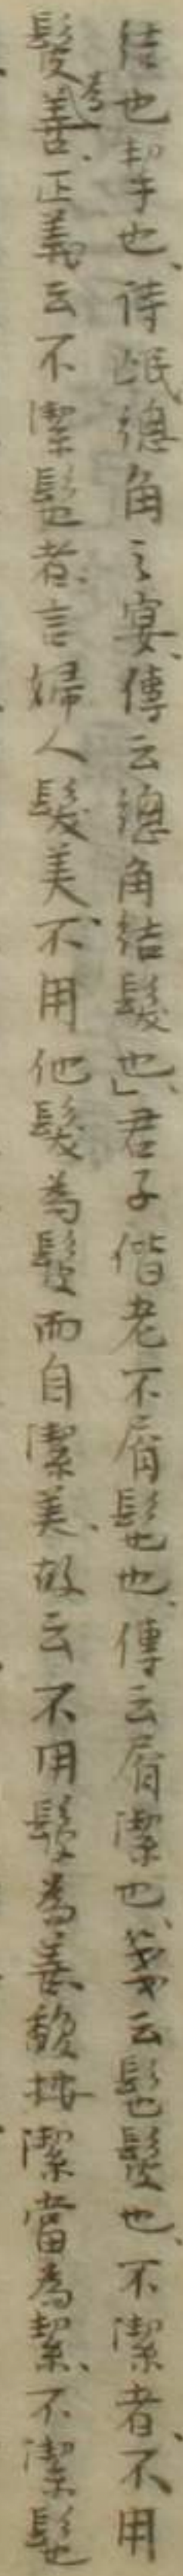 結也挈也、詩氓總角之宴、傳云總角結髮也、」君子偕老不屑髢也、傳云屑潔也、箋云髢髲也、不潔者、不用
髲爲善、正義云不潔髢者、言婦人髮美、不用他髮為髲而自潔美、故云不用髲為善、馥按潔當為絜、不潔髢